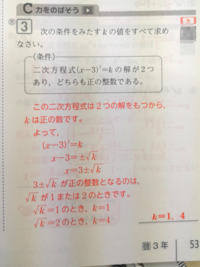 C 力をのばそう
3 次の条件をみたすkの値をすべて求め
なさい。
〈条件〉
二次方程式(x-3)²=kの解が2つ
あり、どちらも正の整数である。
この二次方程式は2つの解をもつから、
kは正の数です。
よって、
(x-3)²=k
x-3=±√k
x=3±√k
3±√kが正の整数となるのは、
√kが1または2のときです。
√k=1のとき、k=1
√k=2のとき、k=4
k=1, 4
3年 53